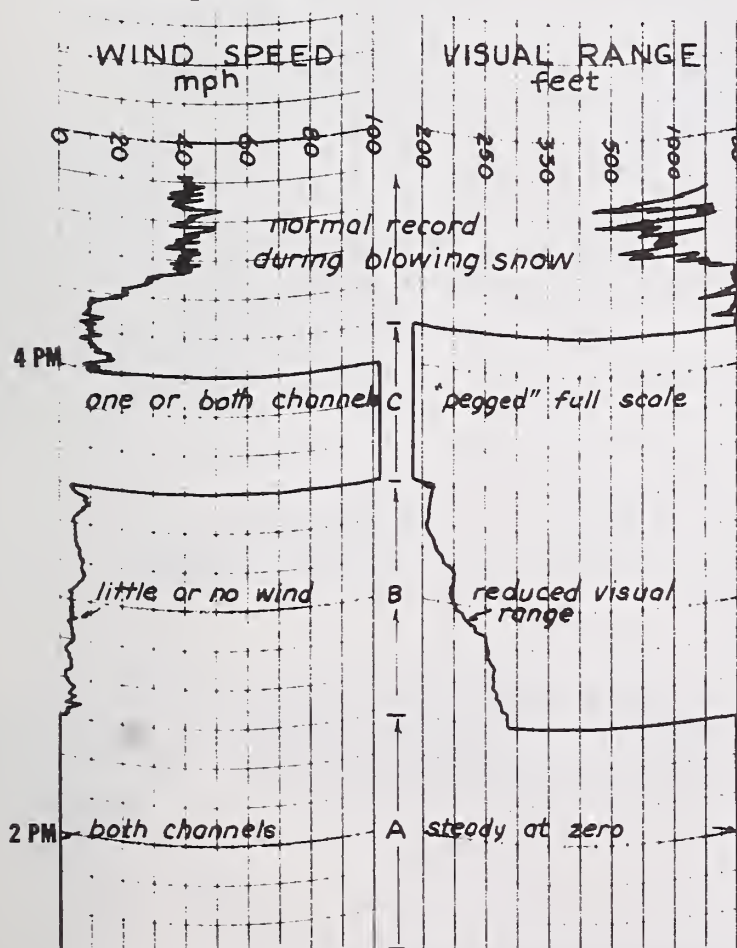 WIND SPEED
mph
VISUAL RANGE
feet
0 20 40 60 80 100
200 250 350 500 1000
normal record
during blowing snow
4 PM
one or both channels C "pegged" full scale
little or no wind B reduced visual
range
2 PM both channels A steady at zero